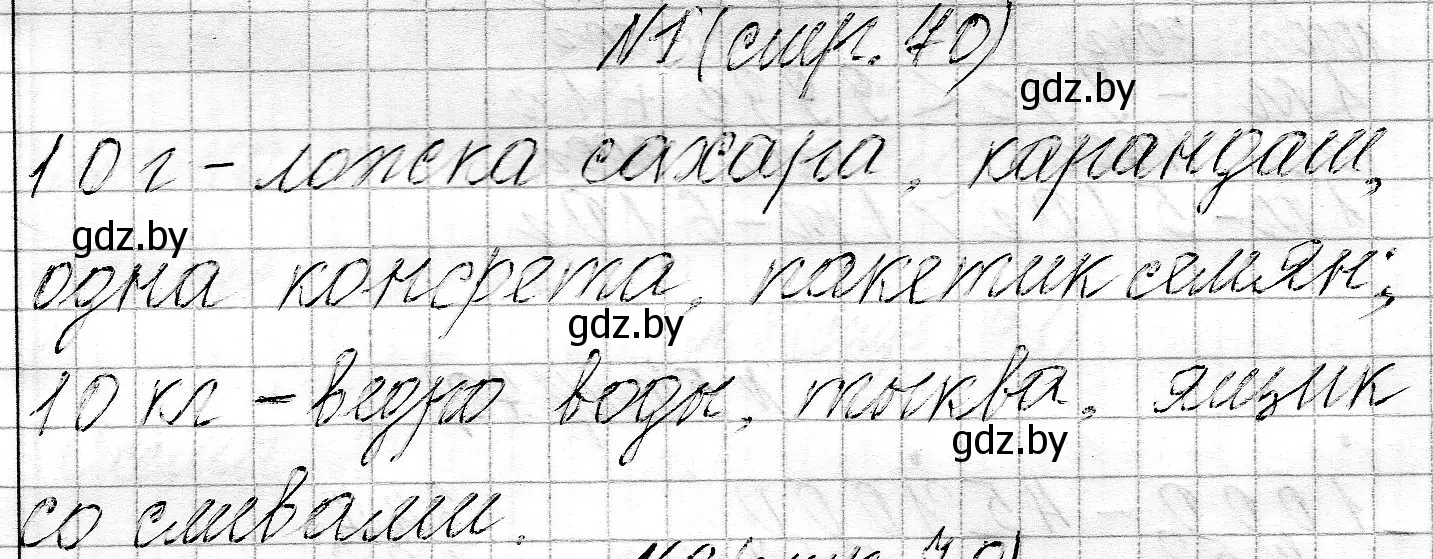 №1 (стр. 70)
gdz.by
10 г - ложка сахара, карандаш,
gdz.by
одна конфета, пакетик семян;
gdz.by
10 кг - ведро воды, тыква, ящик
gdz.by
со сливами.